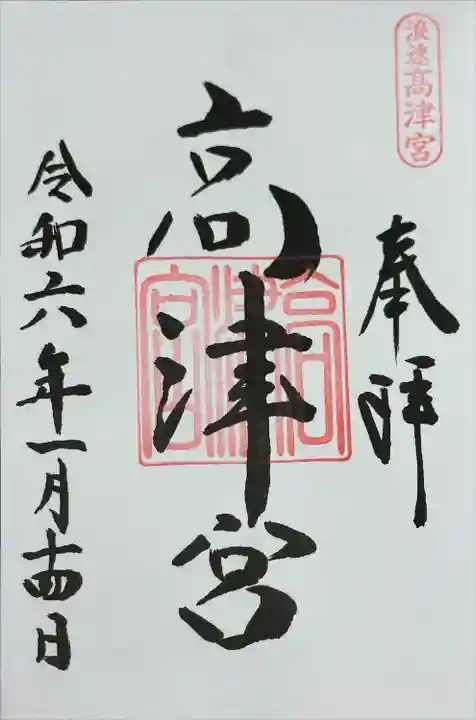 浪速高津宮
奉拝
高津宮
高津宮
令和六年一月十四日